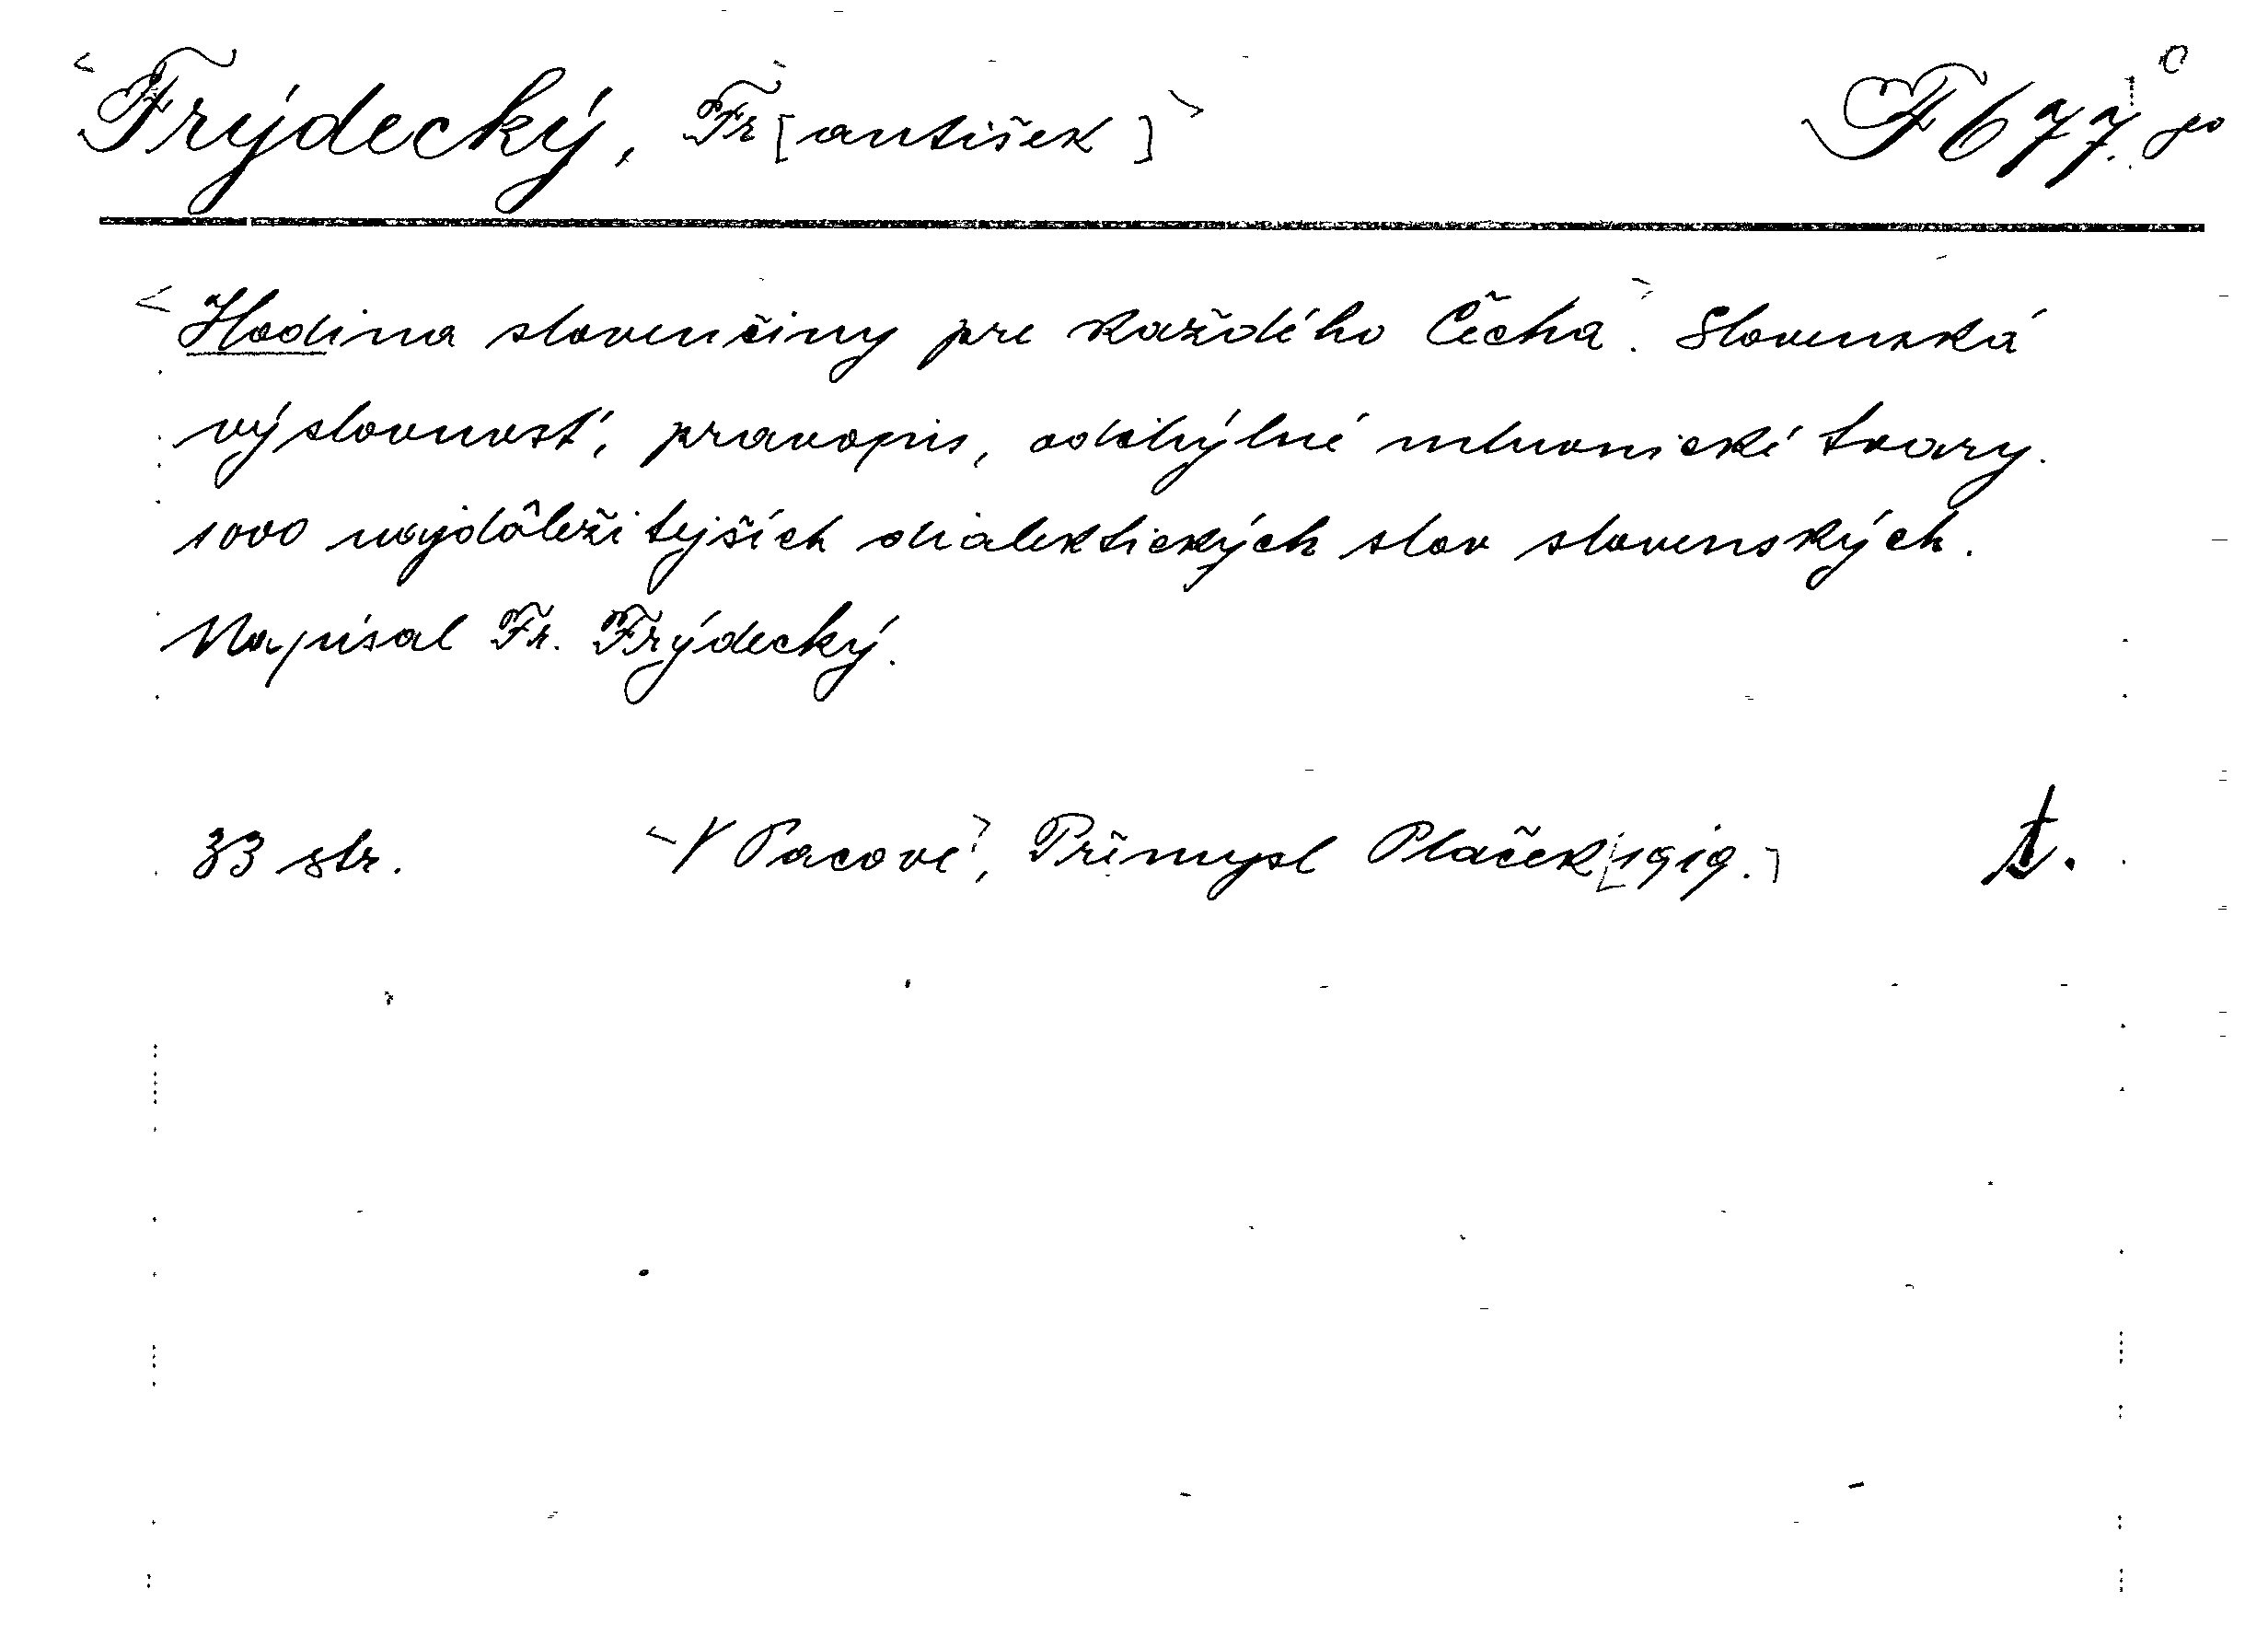 <Frýdecký, Fr[antišek]> F 677
<Hodina slovenčiny pre každého Čecha>. Slovenská
výslovnosť, pravopis, odchýlné mluvnické tvary.
1000 najdôležitejších dialektických slov slovenských.
Napísal Fr. Frýdecký.
33 str. <V Pacově>, Přemysl Plaček [1919.] t.